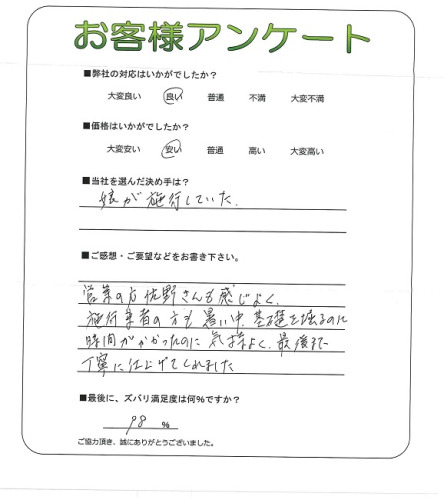 お客様アンケート
■弊社の対応はいかがでしたか?
大変良い 良い 普通 不満 大変不満
■価格はいかがでしたか?
大変安い 安い 普通 高い 大変高い
■当社を選んだ決め手は?
娘が施行していた.
■ご感想・ご要望などをお書き下さい。
営業の方佐野さんも感じよく.
施行業者の方も暑い中.基礎を掘るのに
時間がかかったのに気持よく.最後まで
丁寧に仕上げてくれました
■最後に、ズバリ満足度は何%ですか?
98 %
ご協力頂き、誠にありがとうございました。